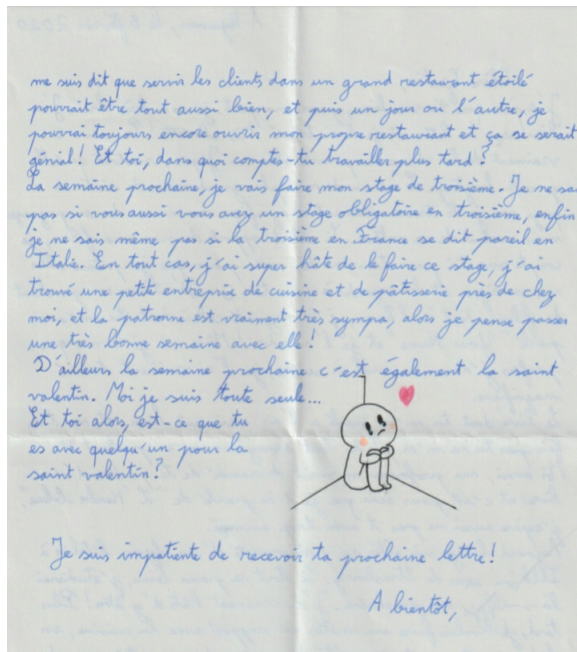 me suis dit que servir les clients dans un grand restaurant étoilé
pourrait être tout aussi bien, et puis un jour ou l'autre, je
pourrai toujours encore ouvrir mon propre restaurant et ça se serait
génial! Et toi, dans quoi comptes-tu travailler plus tard?
La semaine prochaine, je vais faire mon stage de troisième. Je ne sa
pas si vous aussi vous avez un stage obligatoire en troisième, enfin
je ne sais même pas si la troisième en France se dit pareil en
Italie. En tout cas, j'ai super hâte de le faire ce stage, j'ai
trouvé une petite entreprie de cuisine et de pâtisserie près de chez
moi, et la patronne est vraiment très sympa, alors je pense passer
une très bonne semaine avec elle!
D'ailleurs la semaine prochaine c'est également la saint
valentin. Moi je suis toute seule...
Et toi alors, est-ce que tu
es avec quelqu'un pour la
saint valentin?
Je suis impatiente de recevoir ta prochaine lettre!
A bientôt,